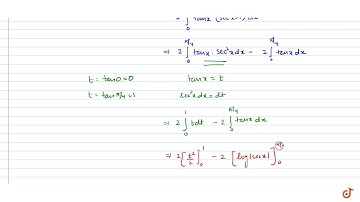 2 ∫₀^{π/4} tanx (sec²x-1) dx
⇒ 2 ∫₀^{π/4} tanx · sec²x dx - 2 ∫₀^{π/4} tanx dx
t = tan0 = 0 tanx = t
t = tan π/4 = 1 sec²x dx = dt
⇒ 2 ∫₀^1 t dt - 2 ∫₀^{π/4} tanx dx
⇒ 2 [t²/2]₀^1 - 2 [log|secx|]₀^{π/4}